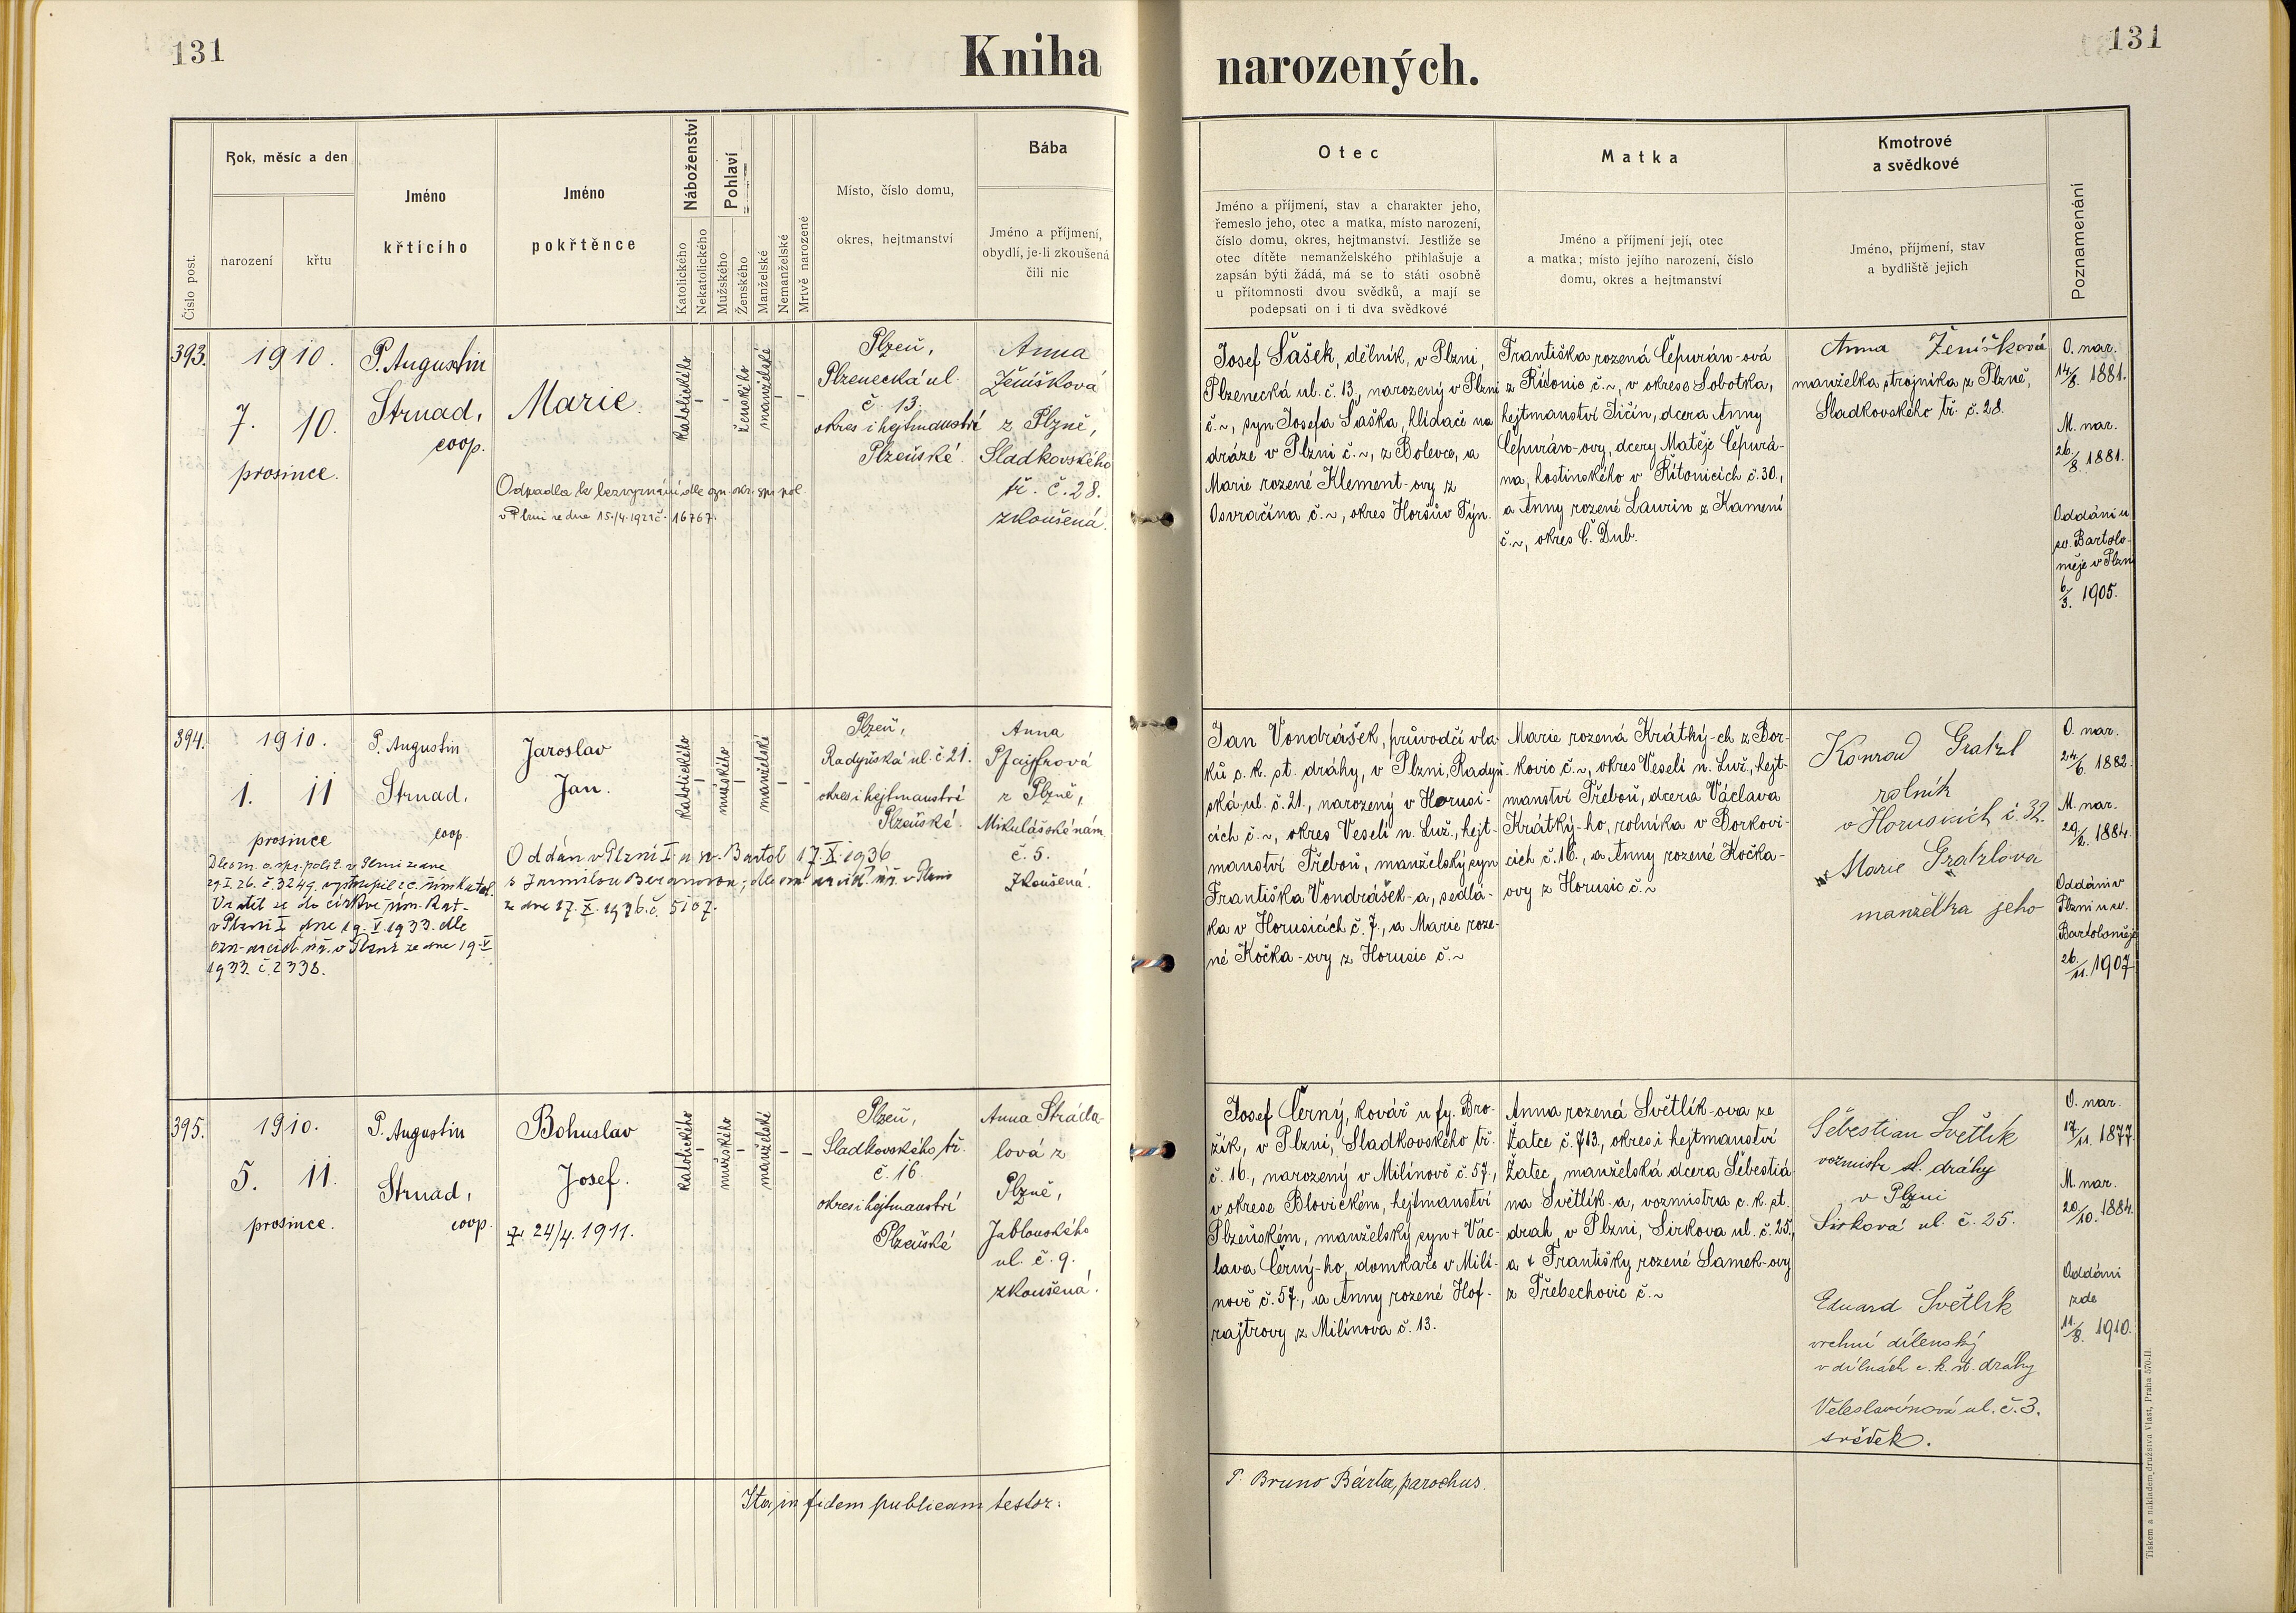 131
Kniha narozených.
131
Číslo post.
Rok, měsíc a den
narození
křtu
Jméno
křticího
Jméno
pokřtěnce
Náboženství
Katolického
Nekatolického
Pohlaví
Mužského
Ženského
Manželské
Nemanželské
Mrtvě narozené
Místo, číslo domu,
okres, hejtmanství
Bába
Jméno a příjmení,
obydlí, je-li zkoušená
čili nic
Otec
Jméno a příjmení, stav a charakter jeho,
řemeslo jeho, otec a matka, místo narození,
číslo domu, okres, hejtmanství. Jestliže se
otec dítěte nemanželského přihlašuje a
zapsán býti žádá, má se to státi osobně
u přítomnosti dvou svědků, a mají se
podepsati on i ti dva svědkové
Matka
Jméno a příjmení její, otec
a matka; místo jejího narození, číslo
domu, okres a hejtmanství
Kmotrové
a svědkové
Jméno, příjmení, stav
a bydliště jejich
Poznamenání
393.
1910.
7. 10.
prosince.
P. Augustin
Strnad,
coop.
Marie.
Odpadla k bezvyznání dle ozn. okr. spr. pol.
v Plzni ze dne 15./4. 1921 č. 16767.
katolického
–
–
ženského
manželské
–
–
Plzeň,
Plzenecká ul.
č. 13.
okres i hejtmanství
Plzeňské.
Anna
Ženíšková
z Plzně,
Sladkovského
tř. č. 28.
zkoušená.
Josef Šašek, dělník, v Plzni,
Plzenecká ul. č. 13, narozený v Plzni
č. ~, syn Josefa Šaška, hlídače na
dráze v Plzni č. ~, z Bolevce, a
Marie rozené Klement-ovy z
Osvračína č. ~, okres Horšův Týn.
Františka rozená Čepurán-ová
z Řitonic č. ~, v okrese Sobotka,
hejtmanství Jičín, dcera Anny
Čepurán-ovy, dcery Matěje Čepurá-
na, hostinského v Řitonicích č. 30.,
a Anny rozené Laurin z Kamení
č. ~, okres Č. Dub.
Anna Ženíšková
manželka strojníka z Plzně,
Sladkovského tř. č. 28.
O. nar.
14/8. 1881.
M. nar.
26./8. 1881.
Oddáni u
sv. Bartolo-
měje v Plzni
6/3. 1905.
394.
1910.
1. 11
prosince
P. Augustin
Strnad,
coop.
Jaroslav
Jan.
Dle ozn. o. spr. polit. v Plzni ze dne
29. I. 26. č. 3249. vystoupil z c. římkatol.
Vrátil se do církve řím. kat.
v Plzni I dne 19. V. 1933. dle
ozn. arciď. úř. v Plzni ze dne 19. V.
1933. č. 2338.
Oddán v Plzni I. u sv. Bartol. 17. X. 1936
s Jarmilou Beranovou; dle ozn. arcid. úř. v Plzni
ze dne 17. X. 1936. č. 5107.
katolického
–
mužského
–
manželské
–
–
Plzeň,
Radyňská ul. č. 21.
okres i hejtmanství
Plzeňské.
Anna
Pfajffrová
z Plzně,
Mikulášské nám.
č. 5.
Zkoušená.
Jan Vondrášek, průvodčí vla-
ků c. k. st. dráhy, v Plzni, Radyň-
ská ul. č. 21., narozený v Horusi-
cích č. ~, okres Veselí n. Luž., hejt-
manství Třeboň, manželský syn
Františka Vondrášek-a, sedlá-
ka v Horusicích č. 7., a Marie roze-
né Kočka-ovy z Horusic č. ~
Marie rozená Krátký-ch z Bor-
kovic č. ~, okres Veselí n. Luž., hejt-
manství Třeboň, dcera Václava
Krátký-ho, rolníka v Borkovi-
cích č. 16., a Anny rozené Kočka-
ovy z Horusic č. ~
Konrad Gratzl
rolník
v Horusicích č. 32.
Marie Gratzlova
manželka jeho
O. nar.
24/6. 1882.
M. nar.
29/2. 1884.
Oddáni v
Plzni u sv.
Bartoloměje
26./11. 1907.
395.
1910.
5. 11.
prosince.
P. Augustin
Strnad,
coop.
Bohuslav
Josef.
24/4. 1911.
katolického
–
mužského
–
manželské
–
–
Plzeň,
Sladkovského tř.
č. 16.
okres i hejtmanství
Plzeňské
Anna Stráda-
lová z
Plzně,
Jablonského
ul. č. 9.
zkoušená.
Josef Černý, kovář u fy. Bro-
žík, v Plzni, Sladkovského tř.
č. 16., narozený v Milínově č. 57.,
v okrese Blovickém, hejtmanství
Plzeňském, manželský syn + Vác-
lava Černý-ho, domkáře v Milí-
nově č. 57., a Anny rozené Hof-
rajtrovy z Milínova č. 13.
Anna rozená Světlík-ova ze
Žatce č. 713., okres i hejtmanství
Žatec, manželská dcera Šebestiá-
na Světlík-a, vozmistra c. k. st.
drah, v Plzni, Sirkova ul. č. 25.,
a + Františky rozené Samek-ovy
z Třebechovic č. ~
Šebestian Světlík
vozmistr st. dráhy
v Plzni
Sirková ul. č. 25.
Eduard Světlík
vrchní dílenský
v dílnách c. k. st. dráhy
Veleslavínová ul. č. 3.
svědek.
O. nar.
17/11. 1877.
M. nar.
20/10. 1884.
Oddáni
zde
11./8. 1910.
Ita in fidem publicam testor:
P. Bruno Bárta, parochus.
Tiskem a nákladem družstva Vlast, Praha 570-II.